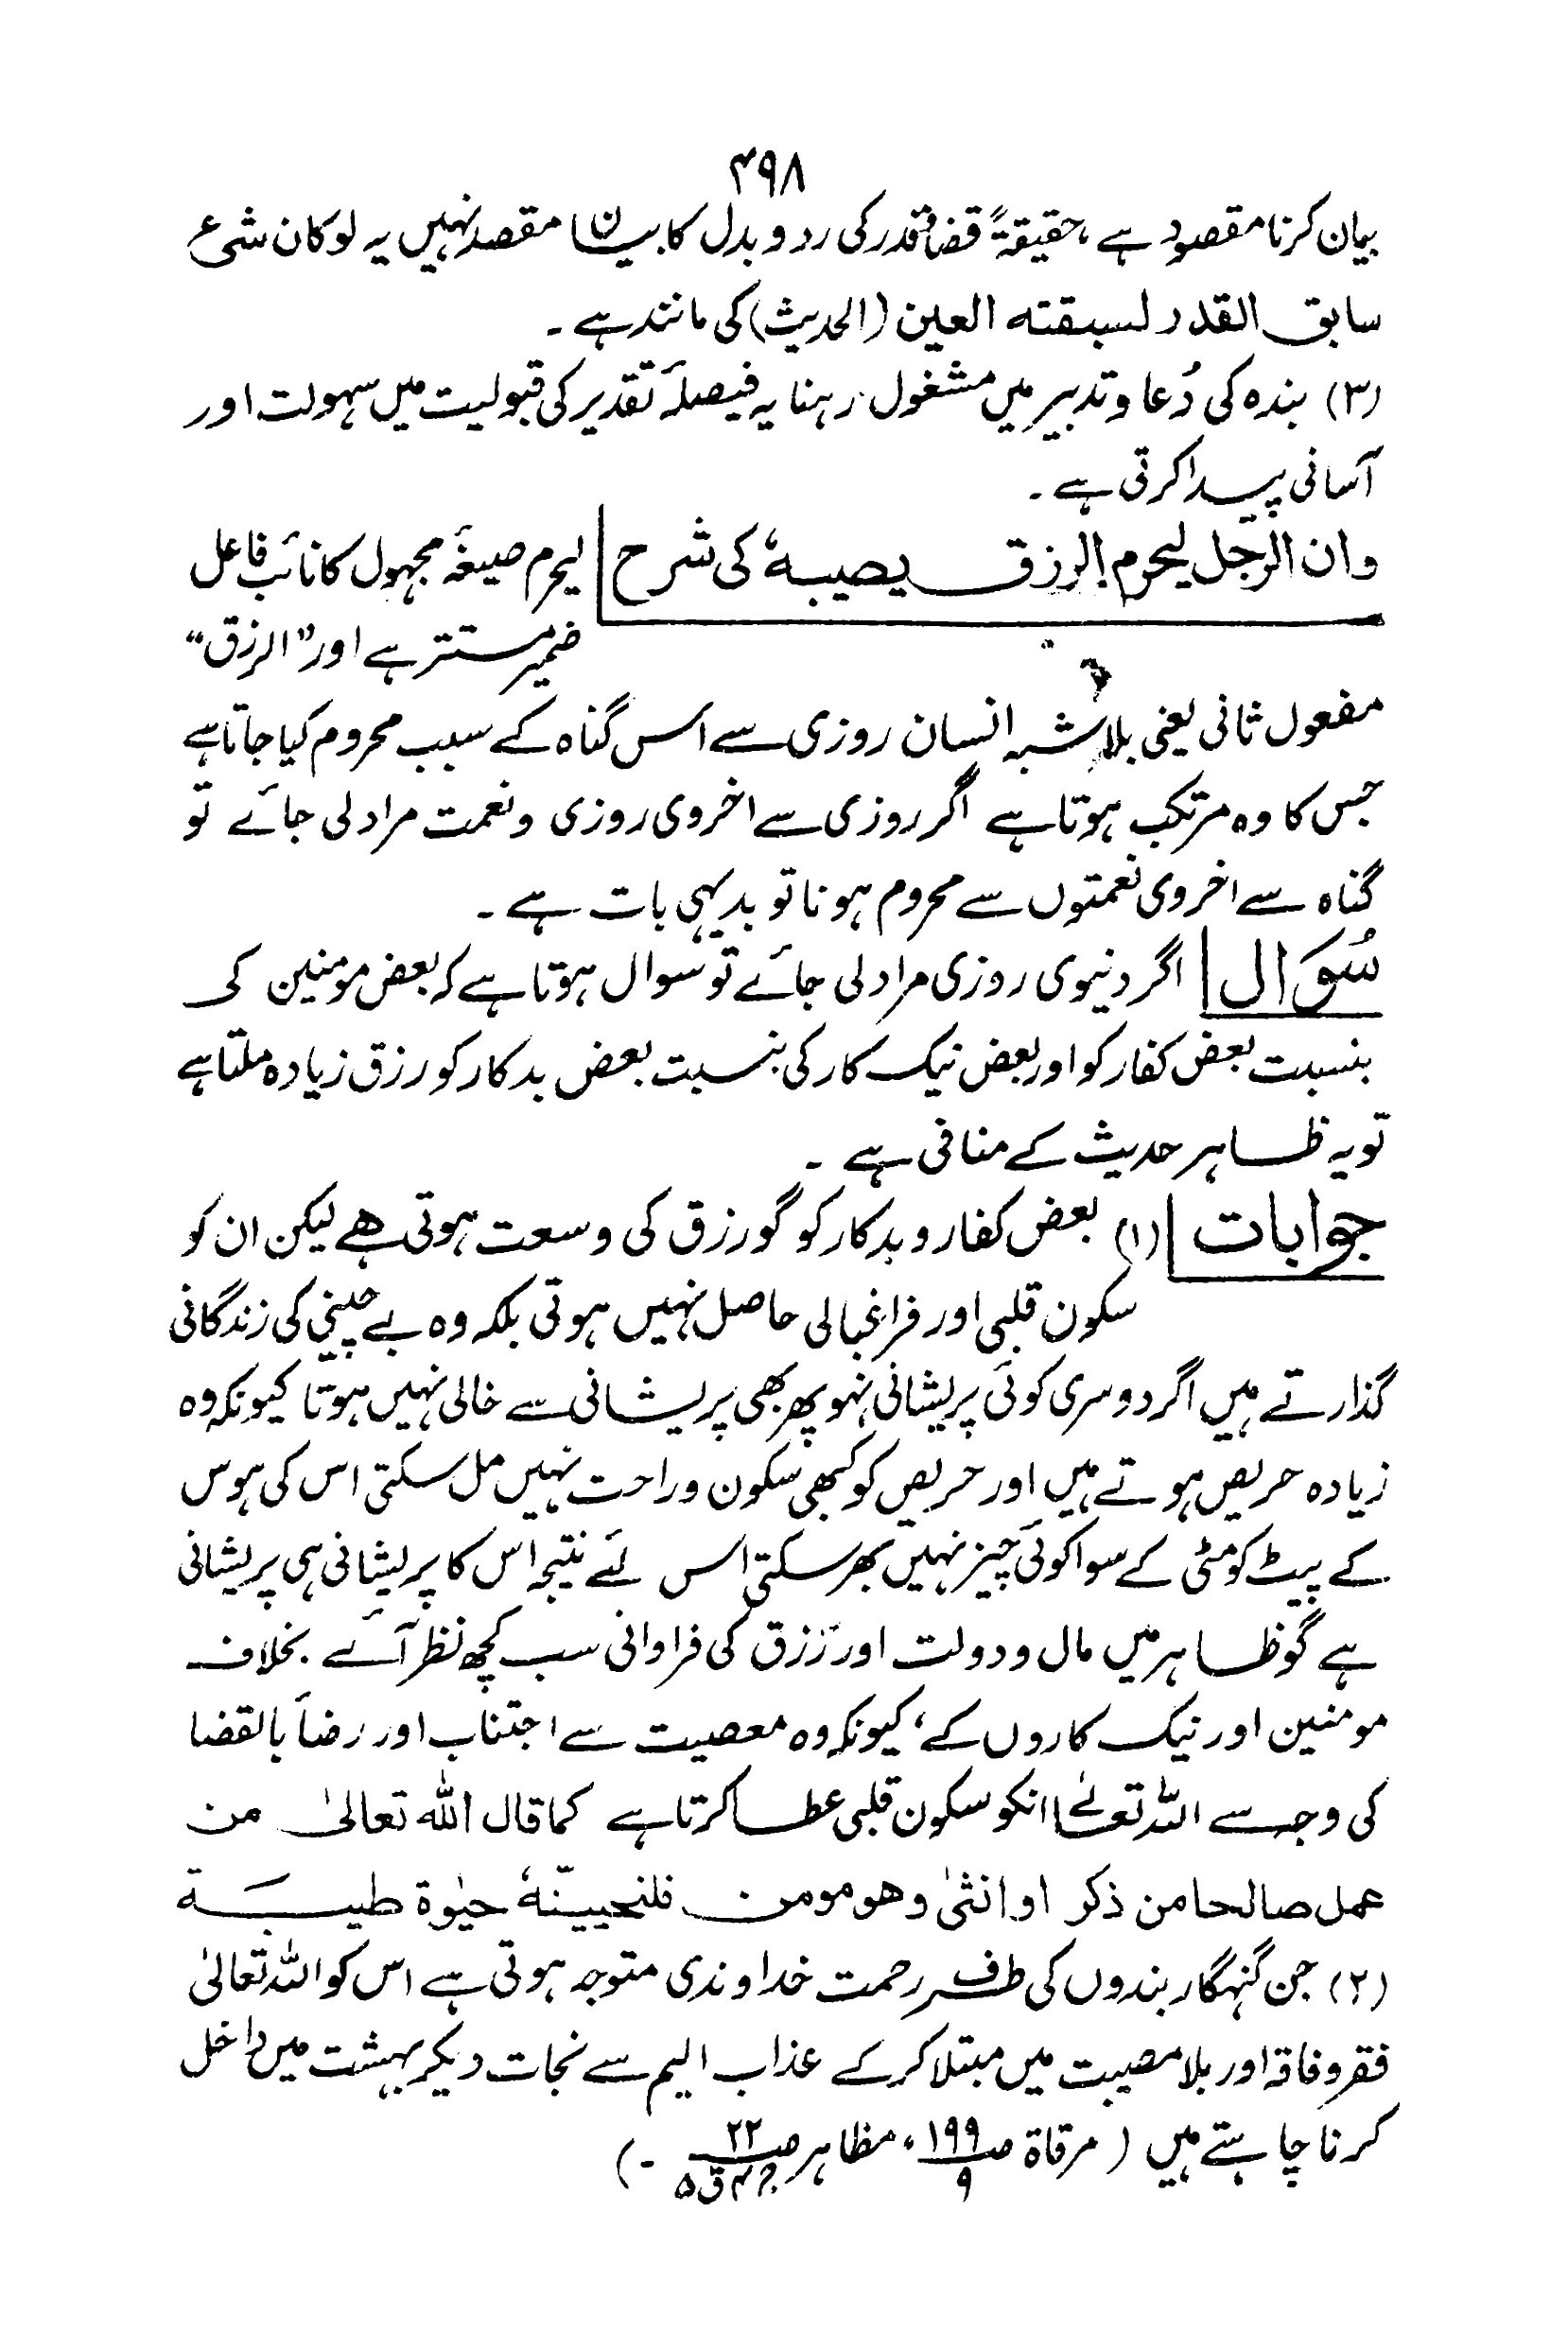 ۴۹۸
بیان کرنا مقصود ہے ، حقیقۃً قضا وقدر کی رد و بدل کا بیان مقصد نہیں یہ لوکان شئ ع
سابق القدر لسبقته العین (الحدیث) کی مانند ہے ۔
(۳) بندہ کی دُعا و تدبیر میں مشغول رہنا یہ فیصلۂ تقدیر کی قبولیت میں سہولت اور
آسانی پیدا کرتی ہے ۔
وان الرجل لیحرم الرزق یصیبہٗ کی شرح لیحرم صیغۂ مجہول کا نائب فاعل
ضمیر مستتر ہے اور ”الرزق“
مفعول ثانی یعنی بلا شبہ انسان روزی سے اس گناہ کے سبب محروم کیا جاتا ہے
جس کا وہ مرتکب ہوتا ہے اگر روزی سے اخروی روزی و نعمت مراد لی جائے تو
گناہ سے اخروی نعمتوں سے محروم ہونا تو بدیہی بات ہے ۔
سُوَال اگر دنیوی روزی مراد لی جائے تو سوال ہوتا ہے کہ بعض مومنین کی
بنسبت بعض کفار کو اور بعض نیک کار کی بنسبت بعض بدکار کو رزق زیادہ ملتا ہے
تو یہ ظاہر حدیث کے منافی ہے ۔
جوابات (۱) بعض کفار و بدکار کو گو رزق کی وسعت ہوتی ھے لیکن ان کو
سکون قلبی اور فراغبالی حاصل نہیں ہوتی بلکہ وہ بے چینی کی زندگانی
گذارتے ہیں اگر دوسری کوئی پریشانی نہو پھر بھی پریشانی سے خالی نہیں ہوتا کیونکہ وہ
زیادہ حریص ہوتے ہیں اور حریص کو کبھی سکون و راحت نہیں مل سکتی اس کی ہوس
کے پیٹ کو مٹی کے سوا کوئی چیز نہیں بھر سکتی اس لئے نتیجہ اس کا پریشانی ہی پریشانی
ہے گو ظاہر میں مال و دولت اور رزق کی فراوانی سب کچھ نظر آئے . بخلاف
مومنین اور نیک کاروں کے ، کیونکہ وہ معصیت سے اجتناب اور رضاً بالقضا
کی وجہ سے اللہ تعالےٰ انکو سکون قلبی عطا کرتا ہے کما قال اللہ تعالیٰ من
عمل صالحا من ذکر او انثیٰ وھو مومن فلنحیینّہٗ حیٰوۃ طیبَۃ
(۲) جن گنہگار بندوں کی طرف رحمت خداوندی متوجہ ہوتی ہے اس کو اللہ تعالیٰ
فقر و فاقہ اور بلا مصیبت میں مبتلا کر کے عذاب الیم سے نجات دیکر بہشت میں داخل
کرنا چاہتے ہیں ( مرقاۃ ص۱۹۹ ۹ ، مظاہر ص۲۲ ج۴ ق۵ ۔)